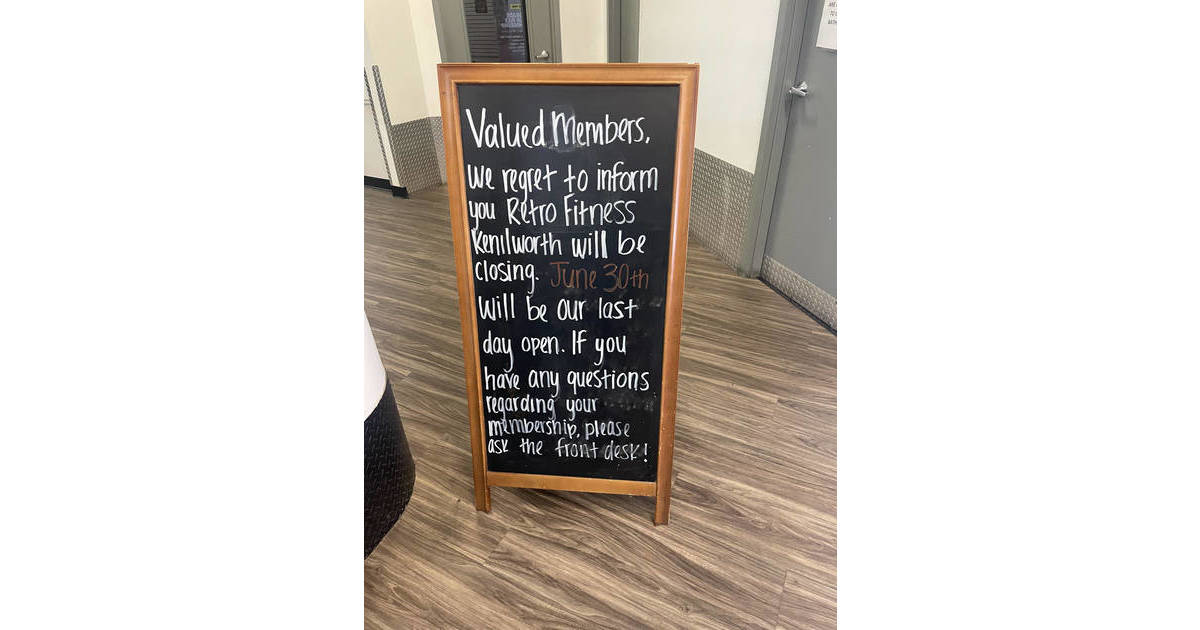 Valued Members,
We regret to inform
you Retro Fitness
Kenilworth will be
closing. June 30th
will be our last
day open. If you
have any questions
regarding your
membership, please
ask the front desk!